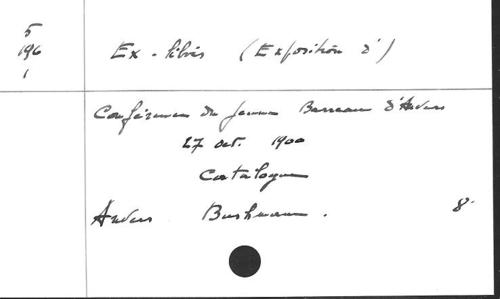 5
196
1
Ex-libris (Exposition d')
Conférence du Jeune Barreau d'Anvers
27 oct. 1900
Catalogue
Anvers Buschmann. 8°